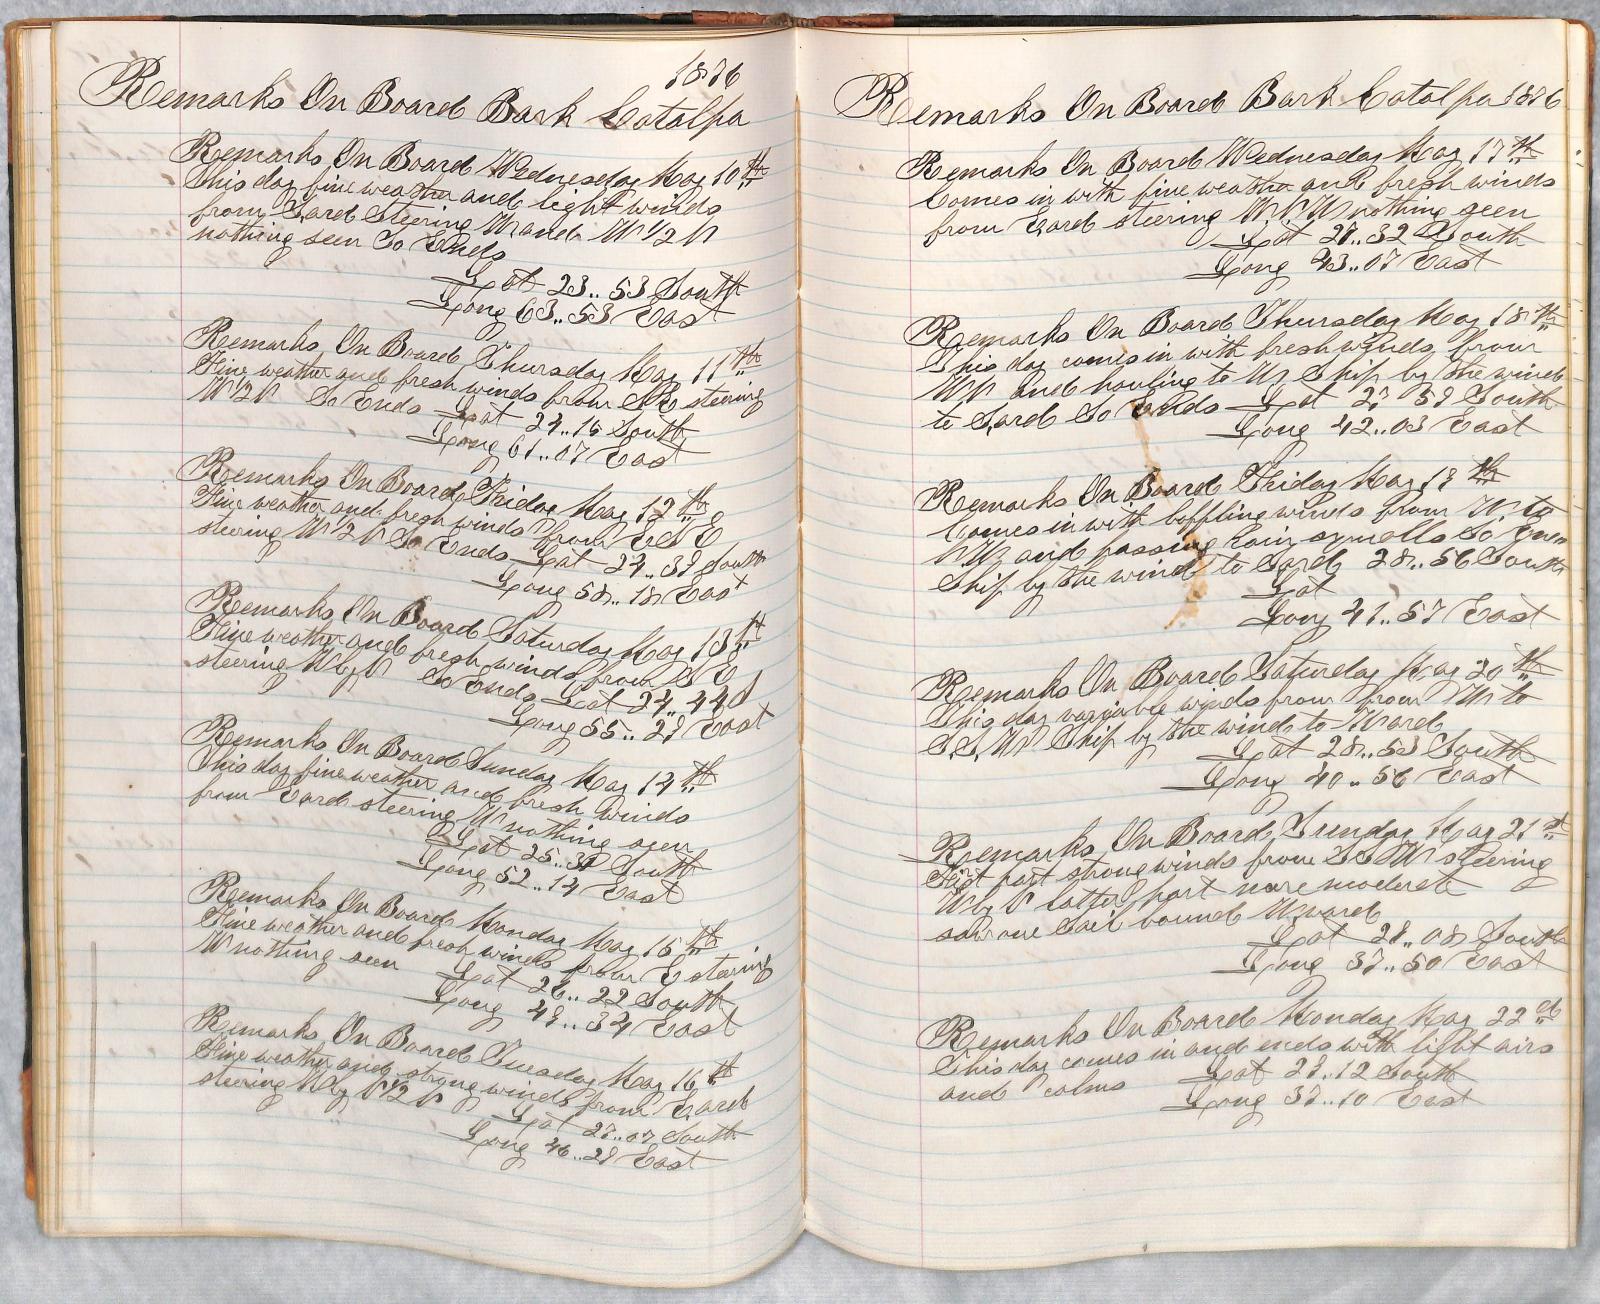 1876
Remarks On Board Bark Catalpa
Remarks On Board Wednesday May 10th
This day fine weather and light winds
from Eard Steering W and W 1/2 N
nothing seen So Ends
Lat 23.. 53 South
Long 63.. 53 East
Remarks On Board Thursday May 11th
Fine weather and fresh winds from SE steering
W 1/2 N So Ends Lat 24..15 South
Long 61..07 East
Remarks On Board Friday May 12th
Fine weather and fresh winds from ESE
steering W 1/2 N So Ends Lat 24..39 South
Long 58..18 East
Remarks On Board Saturday May 13
Fine weather and fresh winds from SE
steering W by N So Ends Lat 24..44 S
Long 55..29 East
Remarks On Board Sunday May 14th
This day fine weather and fresh winds
from Eard steering W nothing seen
Lat 25.. South
Long 52..14 East
Remarks On Board Monday May 15th
Fine weather and fresh winds from E steering
W nothing seen Lat 26..22 South
Long 49..34 East
Remarks On Board Tuesday May 16th
Fine weather and strong winds from Eard
steering W by N 1/2 N
Lat 27..07 South
Long 46..29 East
Remarks On Board Bark Catalpa 1876
Remarks On Board Wednesday May 17th
Comes in with fine weather and fresh winds
from Eard steering WNW nothing seen
Lat 27..32 South
Long 43..07 East
Remarks On Board Thursday May 18th
This day comes in with fresh winds from
NN and hauling to W Ship by the wind
to Sard So Ends Lat 27 59 South
Long 42..03 East
Remarks On Board Friday May 19th
Comes in with baffling winds from W to
NW and passing Rain squalls So
Ship by the wind to Sard 28..56 South
Lat
Long 41..57 East
Remarks On Board Saturday May 20th
This day variable winds from from W to
S.S.W Ship by the wind to Ward
Lat 28..53 South
Long 40..56 East
Remarks On Board Sunday May 21st
First part strong winds from SSW steering
W by N latter part more moderate
saw one Sail bound Wward
Lat 29..08 South
Long 37..50 East
Remarks On Board Monday May 22d
This day comes in and ends with light airs
and calms Lat 29..12 South
Long 37..10 East